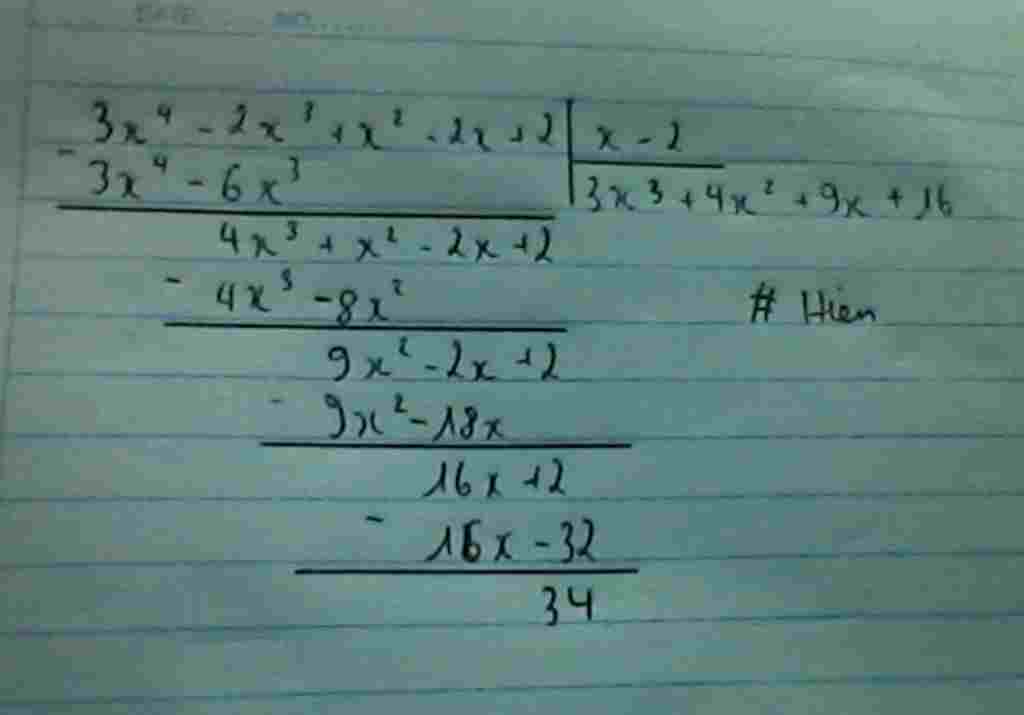 3x⁴ - 2x³ + x² - 2x + 2 | x - 2
- 3x⁴ - 6x³ | 3x³ + 4x² + 9x + 16
4x³ + x² - 2x + 2
- 4x³ - 8x²
# Hien
9x² - 2x + 2
- 9x² - 18x
16x + 2
- 16x - 32
34